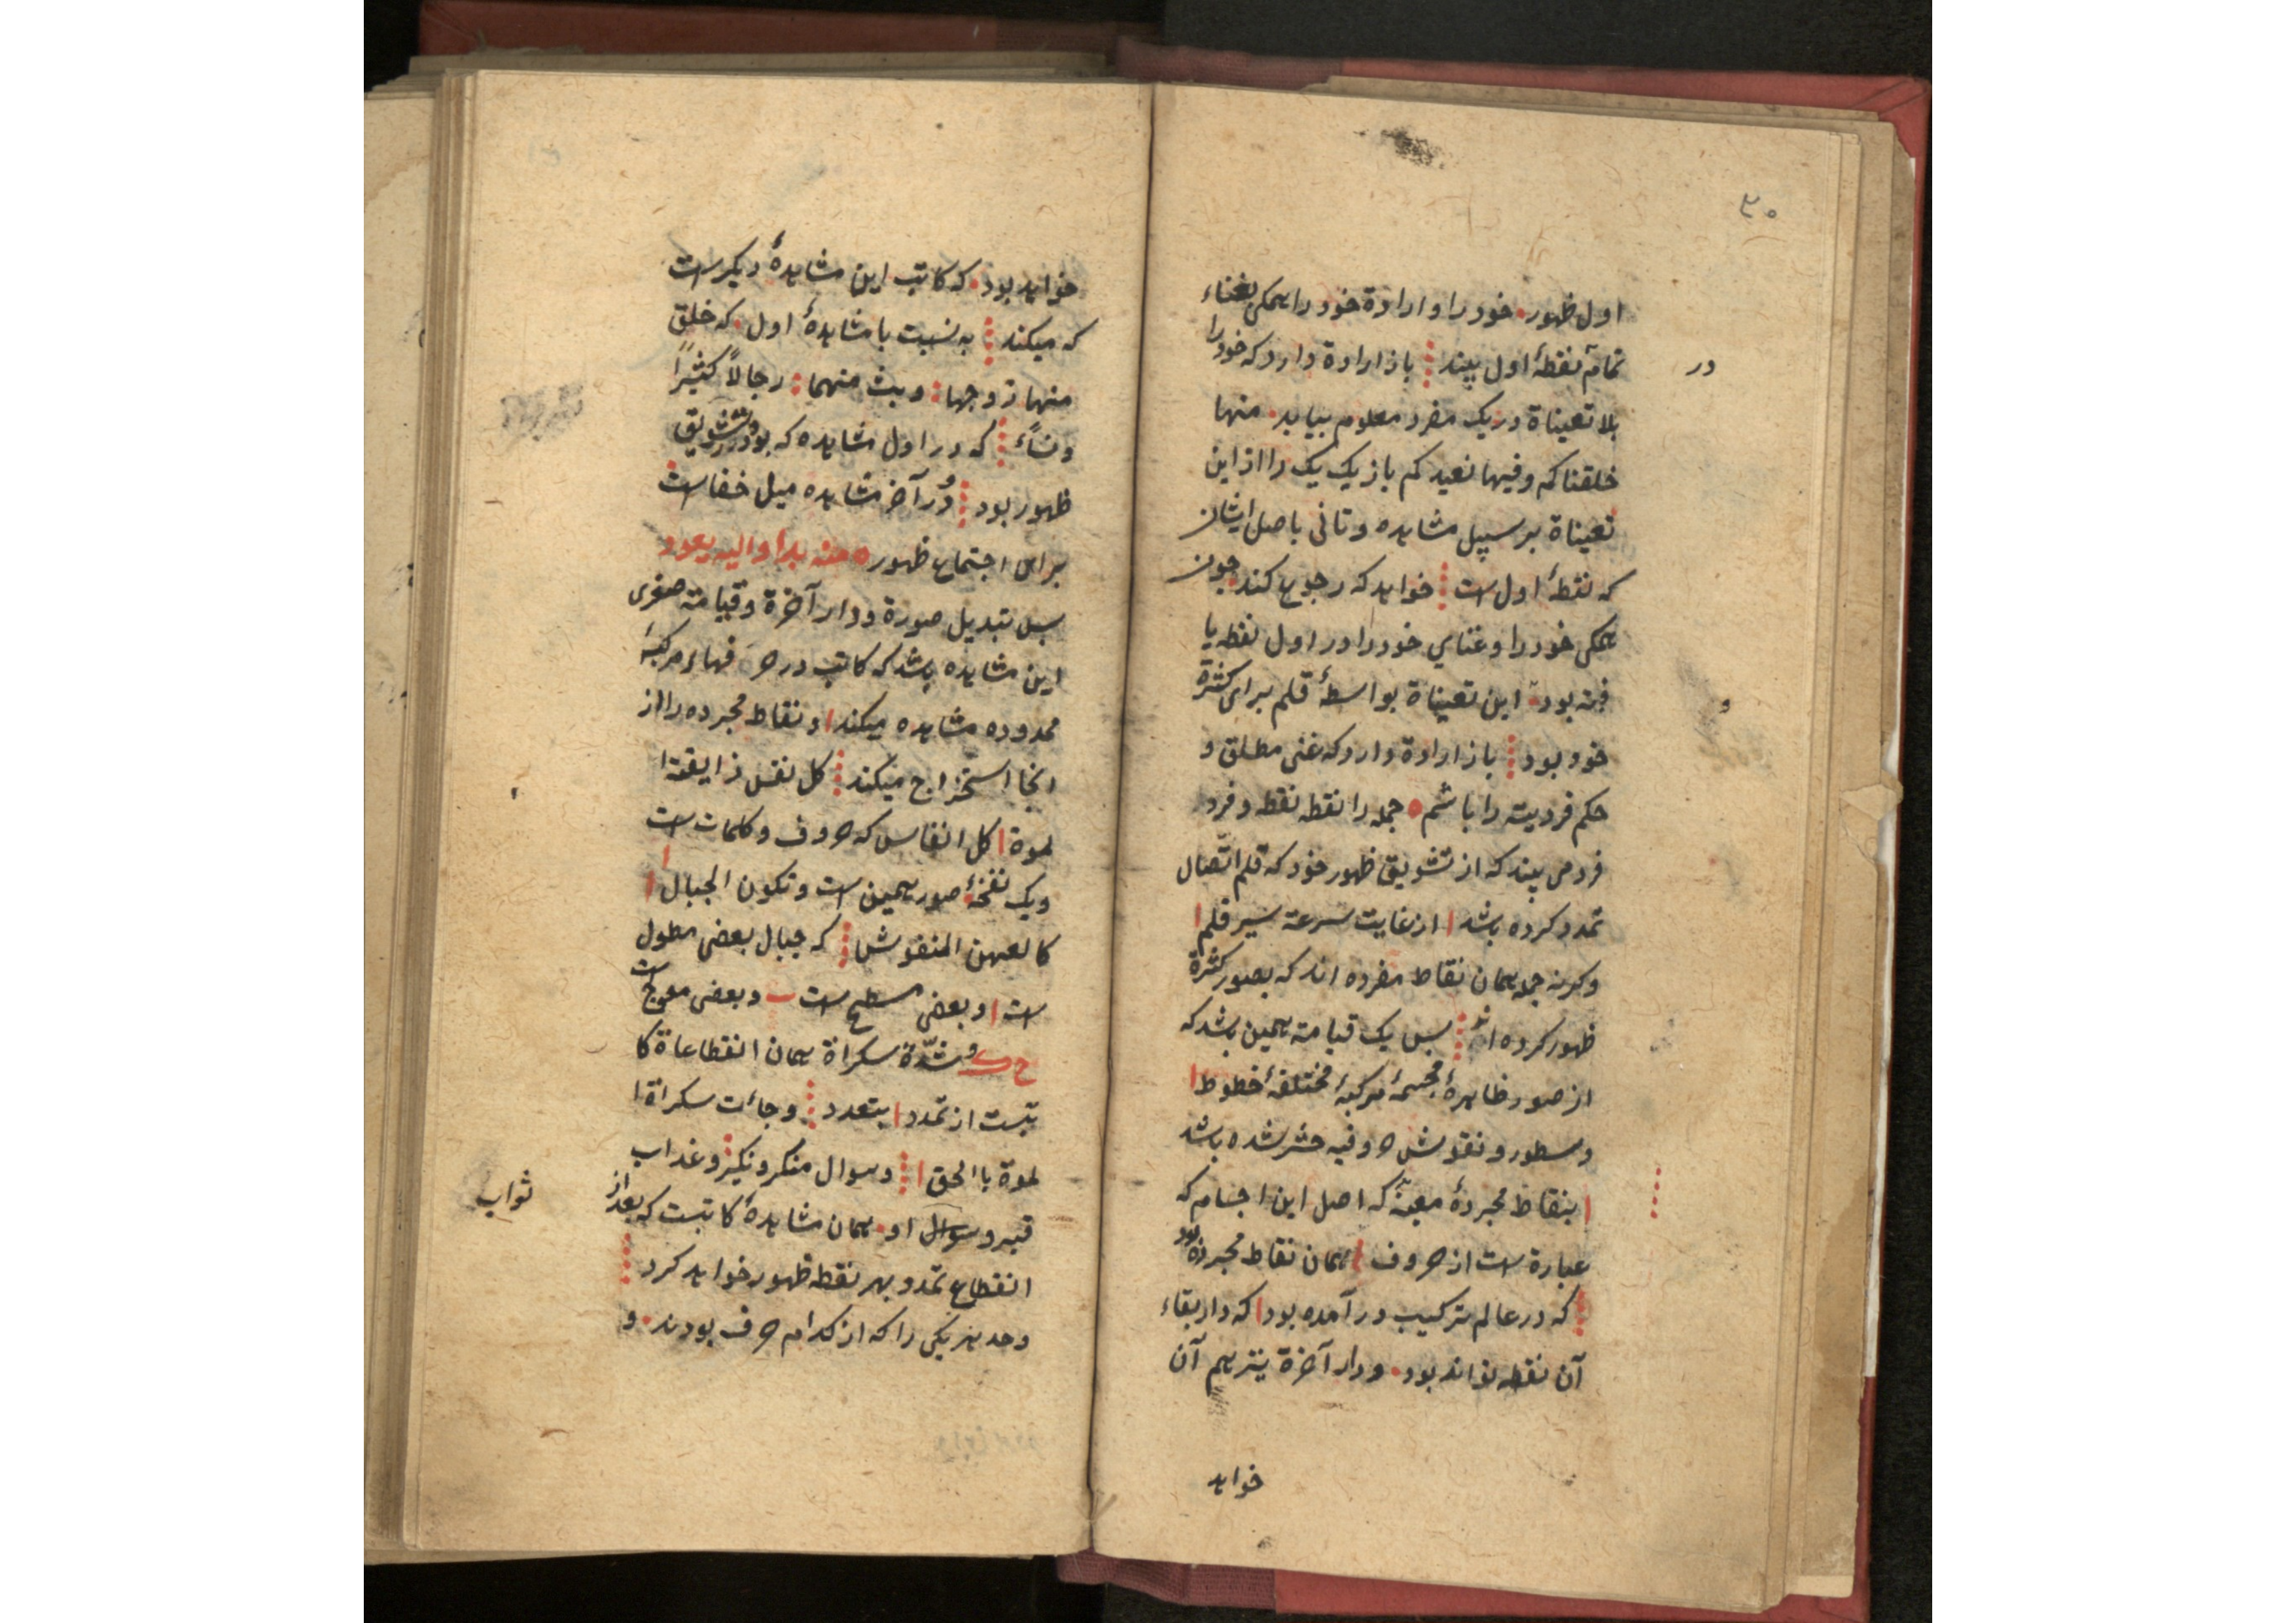 ۳۰
اول ظهور • خود را و ارادة خود را همکی بغناء
تمامه نقطهٔ اول بیند باز ارادة دارد که خود را
در
بلا تعیناة در یک مفرد معلوم بیاید • منها
خلقناکم وفیها نعیدکم باز یک یک را از این
تعیناة بر سبیل مشاهده وتانی باصل ایشان
که نقطهٔ اول است خواهد که رجوع کند • چون
همکی خود را و غنای خود را در اول نقطه یا
فته بود • این تعیناة بواسطهٔ قلم برای کثرة
و
خود بود باز ارادة دارد که غنی مطلق و
حکم فردیت را باشم • جمله را نقطه نقطه و فرد
فرد می بیند که از تشویق ظهور خود که قلم اتّصال
تمدد کرده باشد از غایت سرعة سیر قلم
وکرنه جمله همان نقاط مفرده اند که بصور کثرة
ظهور کرده اند بس یک قیامة همین باشد که
از صور ظاهرهٔ مجسمهٔ مرکبهٔ مختلفهٔ خطوط
و سطور و نقوش حروفیه حشر شده باشد
بنقاط مجردهٔ معینهٔ که اصل این اجسام که
عبارة است از حروف همان نقاط مجرده بود
که در عالم ترکیب در آمده بود که دار بقاء
آن نقطه تواند بود • و دار آخرة نیز هم آن
خواهد
خواهد بود • که کاتب این مشاهدهٔ دیکر است
که میکند به نسبت با مشاهدهٔ اول • که خلق
منها زوجها وبث منهما رجالاً کثیراً
ونساًء که در اول مشاهده که بود در تشویق
ظهور بود و در آخر مشاهده میل خفاست
برای اجتماع ظهور ه منه بدأ والیه یعود
بس تبدیل صورة و دار آخرة و قیامة صغری
این مشاهده باشد که کاتب در حرفهاء مرکبهٔ
محدوده مشاهده میکند و نقاط مجرده را از
انجا استخراج میکند کل نفس ذایقة ا
لموة کل انفاس که حروف و کلمات است
ویک نفخهٔ صور همین است وتکون الجبال
کالعهن المنفوش که جبال بعضی مطول
است وبعضی مسطح است وبعضی معوج است
و شدّة سکراة همان انقطاعاة کا
تبست از تمدد بتعدد وجاءت سکراة ا
لموة باالحق وسوال منکر ونکیر وعذاب
قبر و سوال او • همان مشاهدهٔ کاتبست که بعد از
ثواب
انقطاع تمدد بهر نقطه ظهور خواهد کرد
وحد هر یکی را که از کدام حرف بودند • و